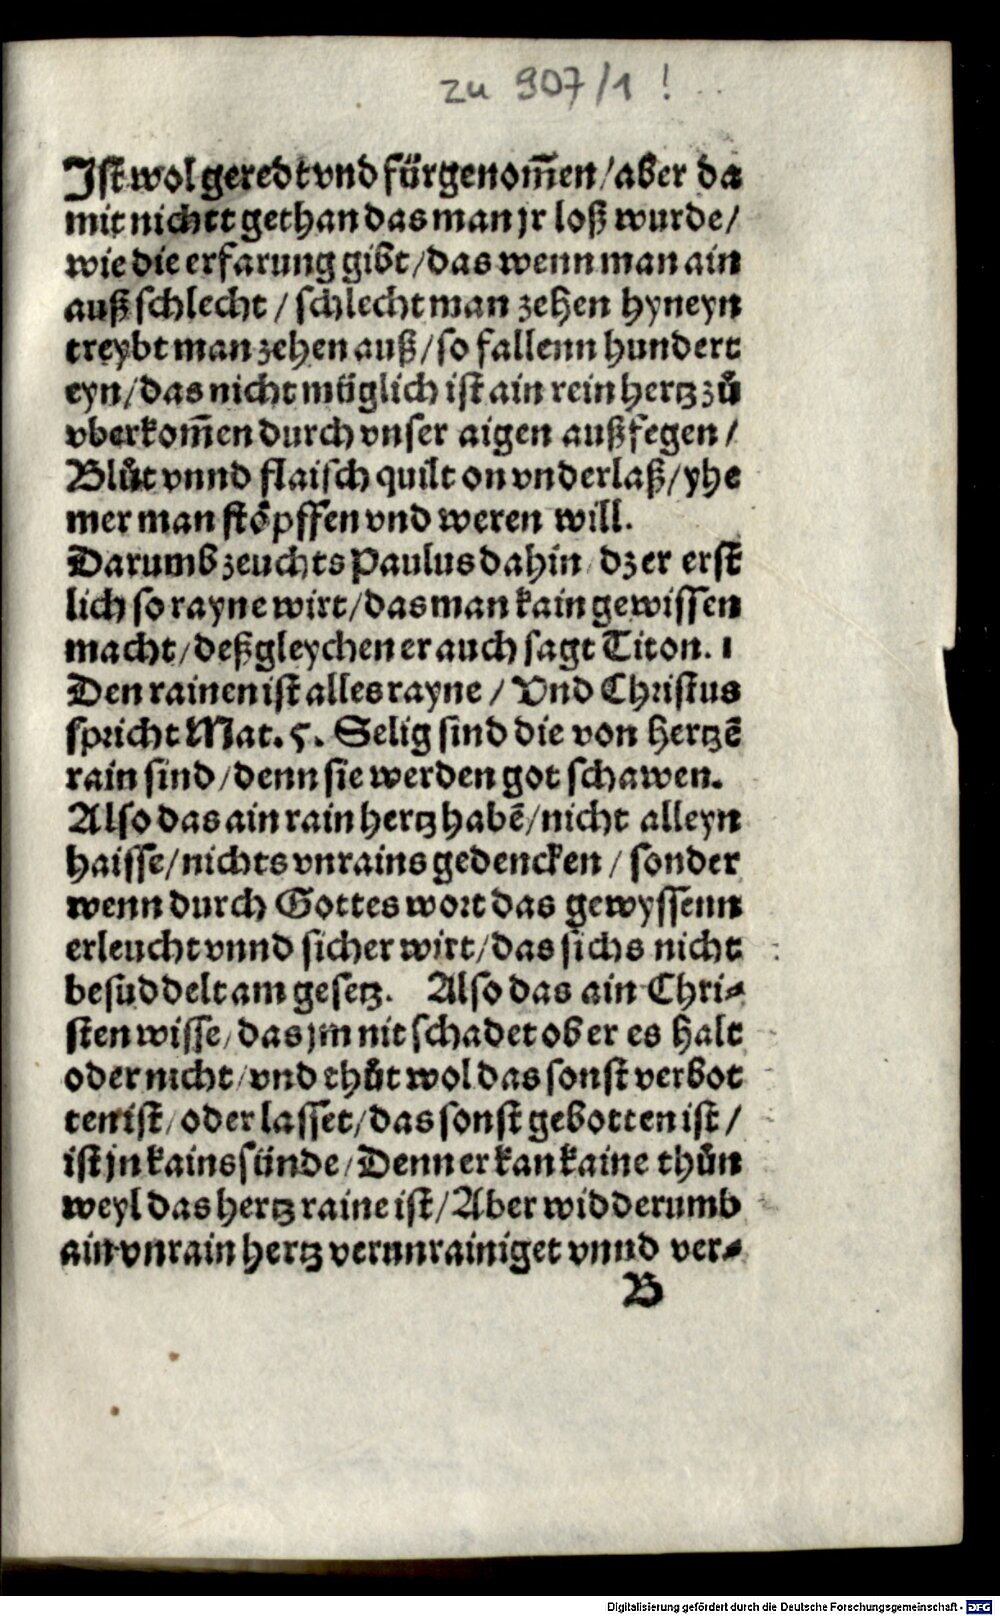 zu 907/1 !
Jst wol geredt vnd fürgenom̃en/aber da
mit nichtt gethan das man jr loß wurde/
wie die erfarung gibt/das wenn man ain
auß schlecht/schlecht man zehen hyneyn
treybt man zehen auß/so fallenn hundert
eyn/das nicht müglich ist ain rein hertz zů
vberkom̃en durch vnser aigen außfegen/
Blůt vnnd flaisch quilt on vnderlaß/yhe
mer man stöpffen vnd weren will.
Darumb zeuchts Paulus dahin/dz er erst
lich so rayne wirt/das man kain gewissen
macht/deßgleychen er auch sagt Titon. 1
Den rainen ist alles rayne/Vnd Christus
spricht Mat. 5. Selig sind die von hertzẽ
rain sind/denn sie werden got schawen.
Also das ain rain hertz habẽ/nicht alleyn
haisse/nichts vnrains gedencken/sonder
wenn durch Gottes wort das gewyssenn
erleucht vnnd sicher wirt/das sichs nicht
besuddelt am gesetz. Also das ain Chri-
sten wisse/das jm nit schadet ob er es halt
oder nicht/vnd thůt wol das sonst verbot
ten ist/oder lasset/das sonst gebotten ist/
ist jn kains sünde/Denn er kan kaine thůn
weyl das hertz raine ist/Aber widderumb
ain vnrain hertz verunrainiget vnnd ver-
B
Digitalisierung gefördert durch die Deutsche Forschungsgemeinschaft - DFG